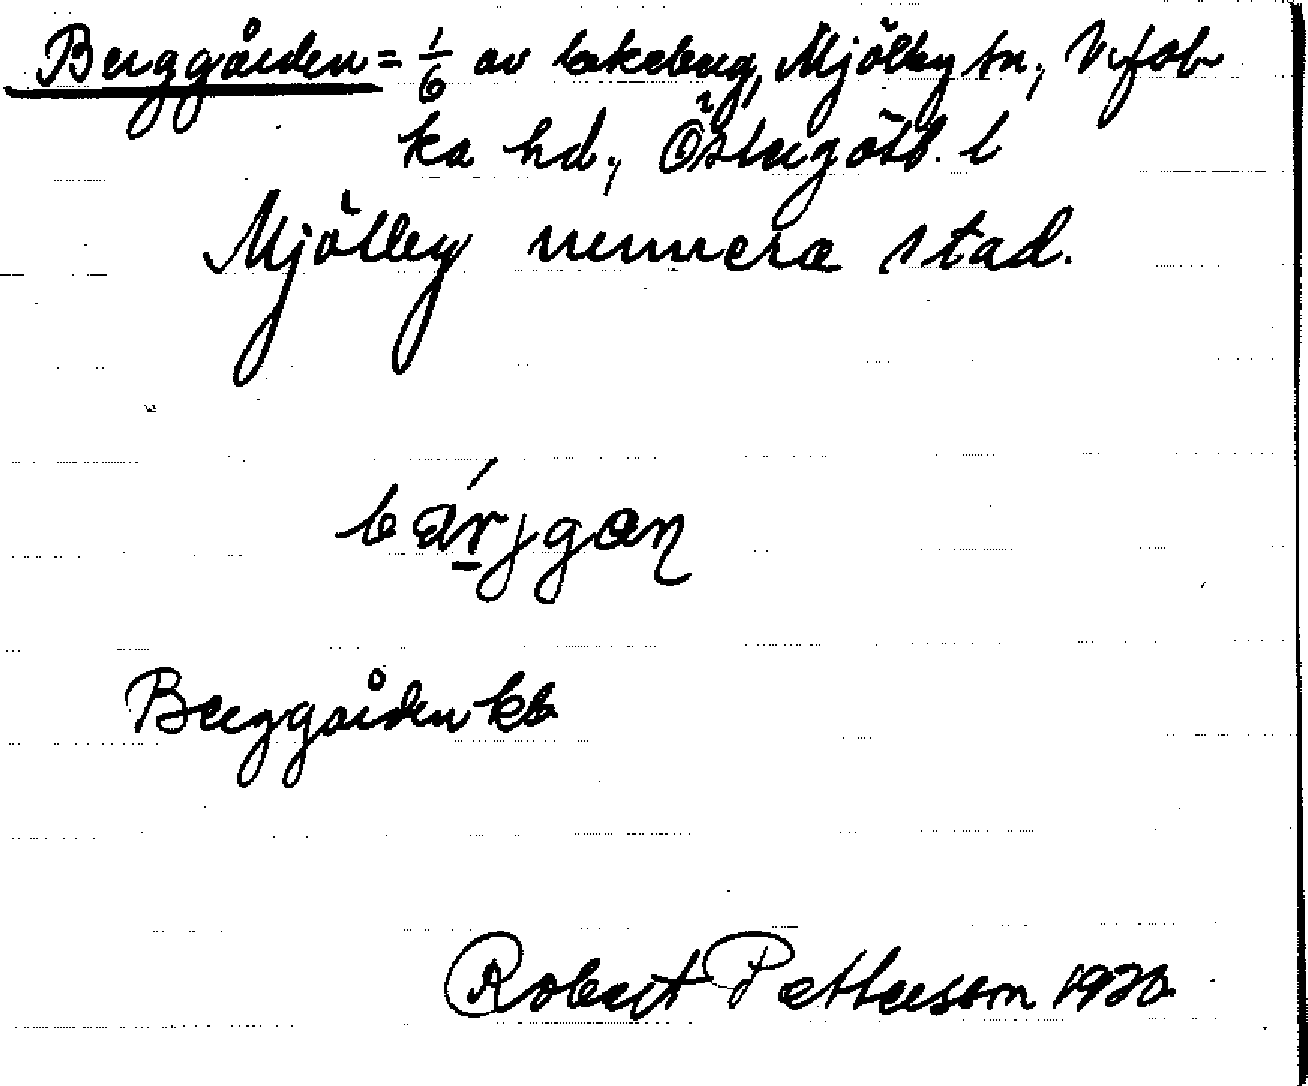 Berggården = 1/6 av Lakeberg, Mjölby sn, Vifol-
ka hd, Östergötl. l
Mjölby numera stad.
Berggården kb
Robert Petterson 1920